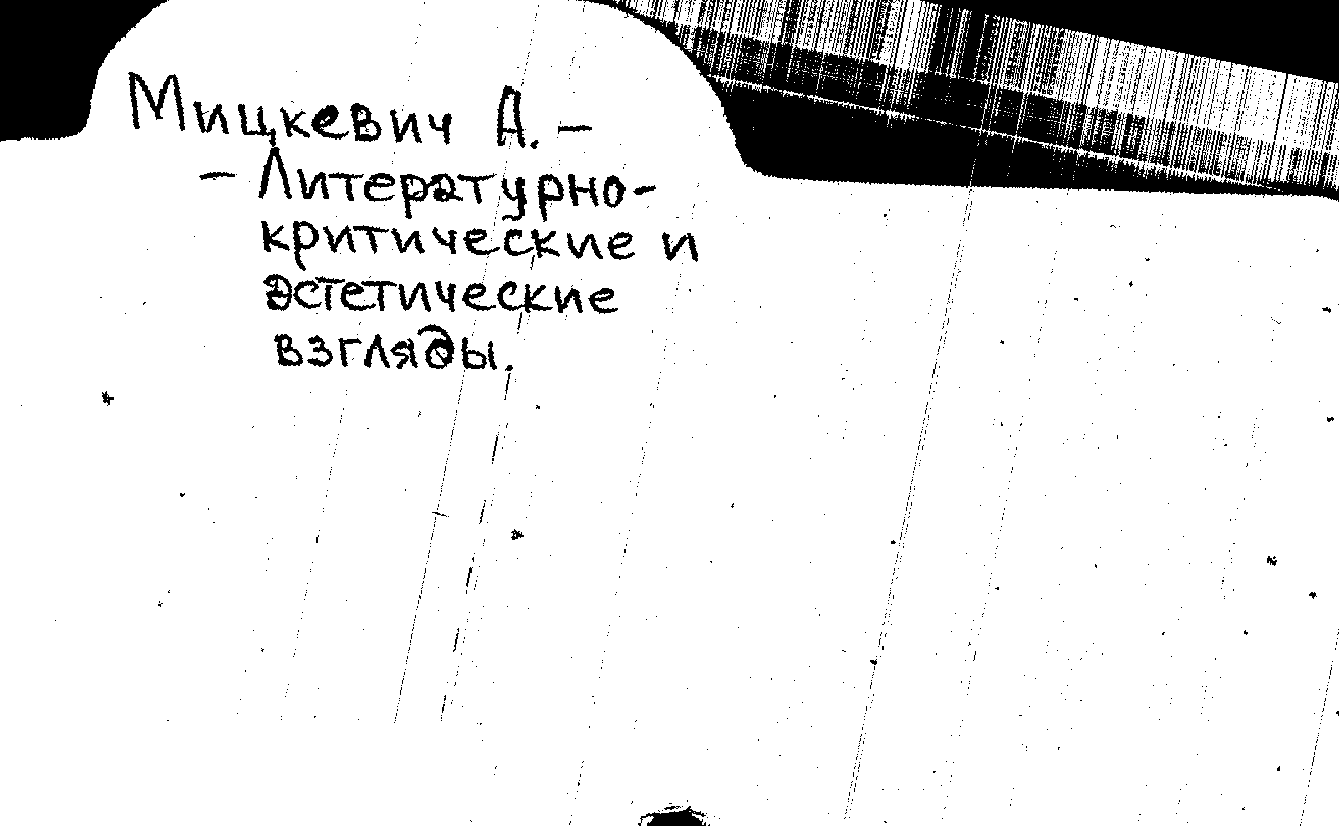 Мицкевич А. –
– Литературно-
критические и
эстетические
взгляды.